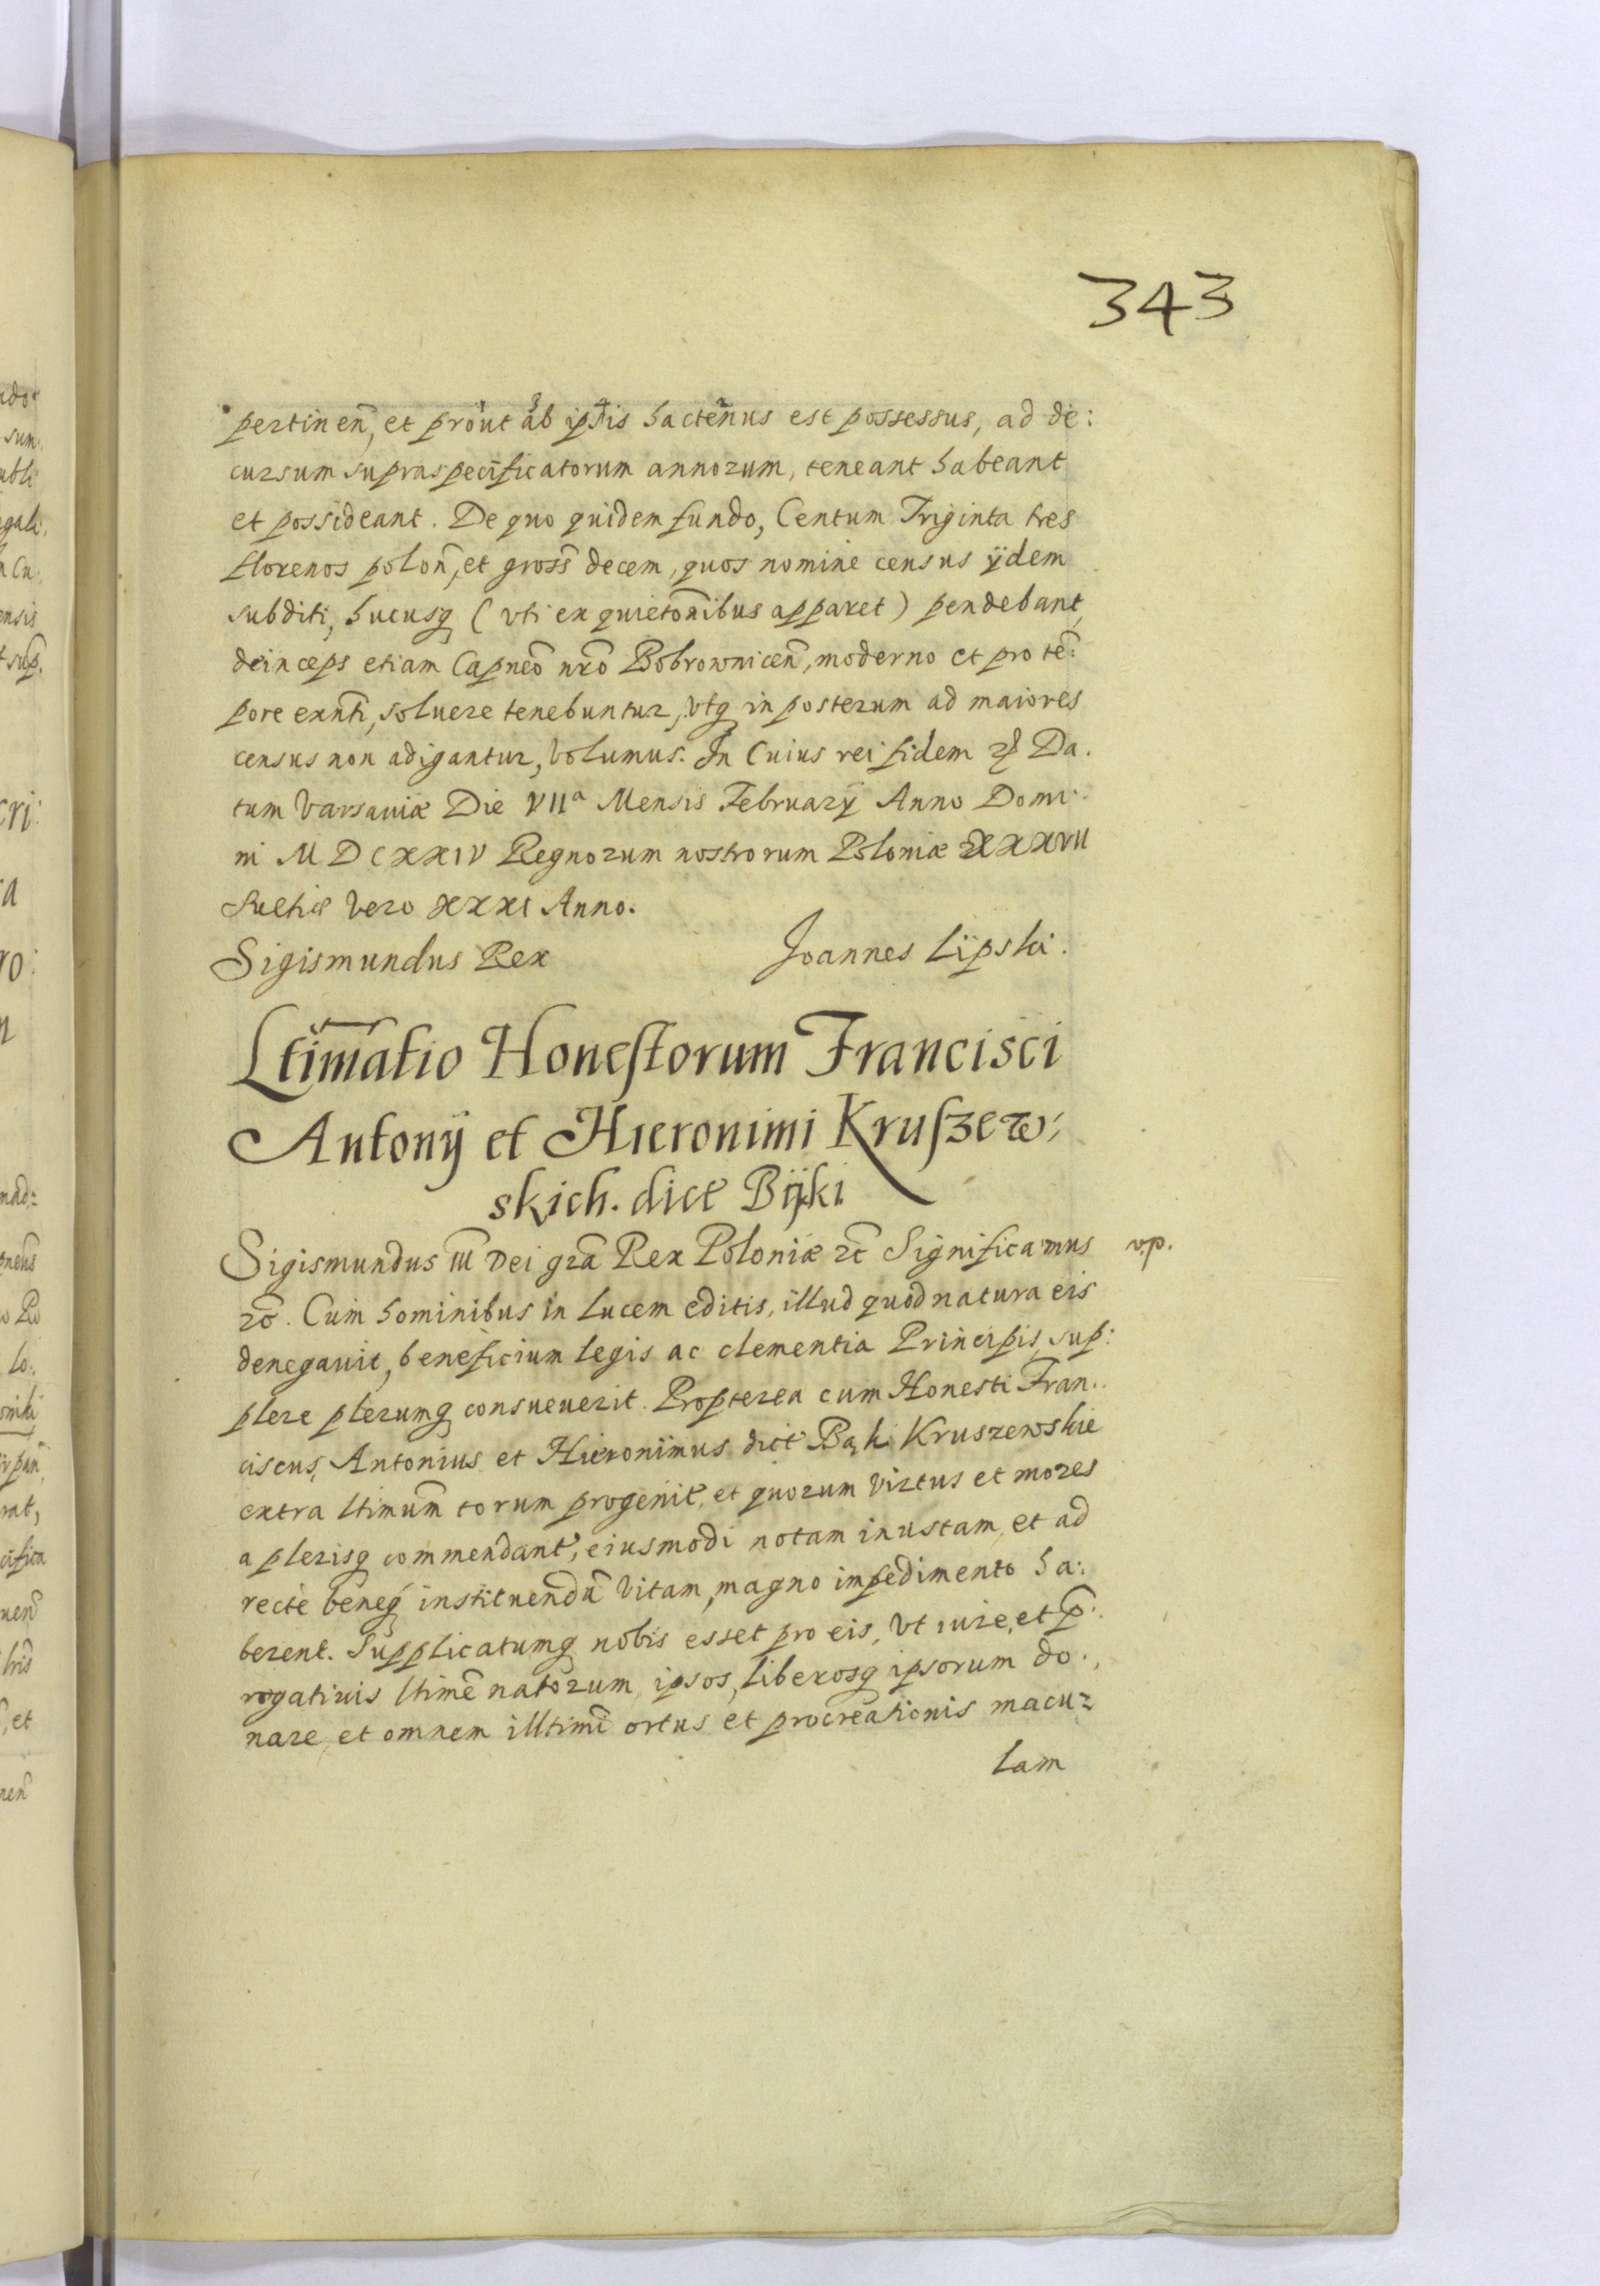 343
pertineñ, et prout ab ipsis hactenus est possessus, ad de:
cursum supraspecificatorum annorum, teneant habeant
et possideant. De quo quidem fundo, Centum Triginta tres
florenos poloñ, et gross̃ decem, quos nomine census ÿdem
subditi, hucusq (vti ex quietõnibus apparet) pendebant,
deinceps etiam Capneõ nrõ Bobrowniceñ, moderno et pro tẽ:
pore exñti, soluere tenebuntur, vtq in posterum ad maiores
census non adigantur, volumus. In Cuius rei fidem ꝛ Da.
tum Varsauiæ Die VIIª Mensis Februarÿ Anno Domi:
ni MDCXXIV Regnorum nostrorum Poloniæ XXXVII
Suetiæ Vero XXXI Anno.
Sigismundus Rex Joannes Lipski.
Ltim̃atio Honestorum Francisci
Antonÿ et Hieronimi Kruszew:
skich. dict
Sigismundus III Dei gr̃a Rex Poloniæ ꝛc̃ Significamus v.p.
ꝛc̃. Cum hominibus in lucem editis, illud quod natura eis
denegauit, beneficium legis ac clementia Principis sup:
plere plerumq consueuerit. Propterea cum Honesti Fran:
ciscus, Antonius et Hieronimus dict Bąki Kruszewskie
extra ltimum̃ torum progenit, et quorum virtus et mores
a plerisq commendant, eiusmodi notam inustam, et ad
recte beneq́ instituendũ vitam, magno impedimento ha:
berent. Supplicatumq nobis esset pro eis, vt iure, et p̃:
rogatiuis ltimẽ natorum, ipsos, liberosq ipsorum do:
nare, et omnem illtimĩ ortus et procreationis macu:
lam